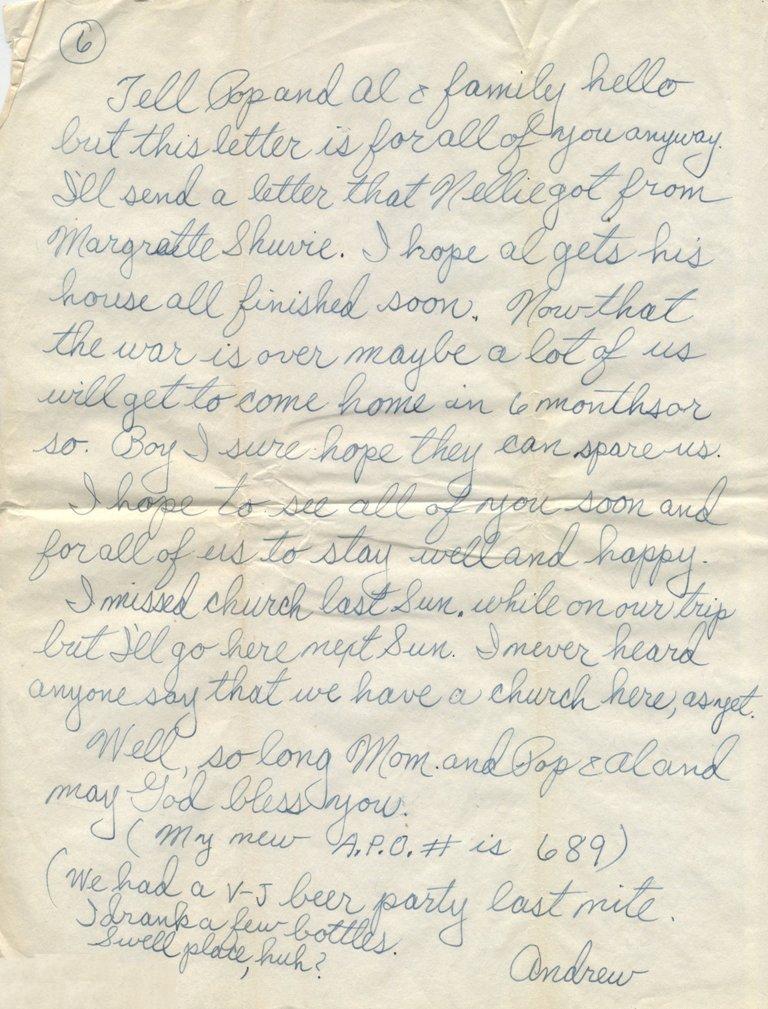 6
Tell Pop and Al & family hello
but this letter is for all of you anyway.
I'll send a letter that Nellie got from
Margratte Shuvie. I hope Al gets his
house all finished soon. Now that
the war is over maybe a lot of us
will get to come home in 6 months or
so. Boy I sure hope they can spare us.
I hope to see all of you soon and
for all of us to stay well and happy.
I missed church last Sun. while on our trip
but I'll go here next Sun. I never heard
anyone say that we have a church here, as yet.
Well, so long Mom. and Pop & Al and
may God bless you.
(My new A.P.O. # is 689)
(We had a V-J beer party last nite.
I drank a few bottles.
Swell place, huh?
Andrew